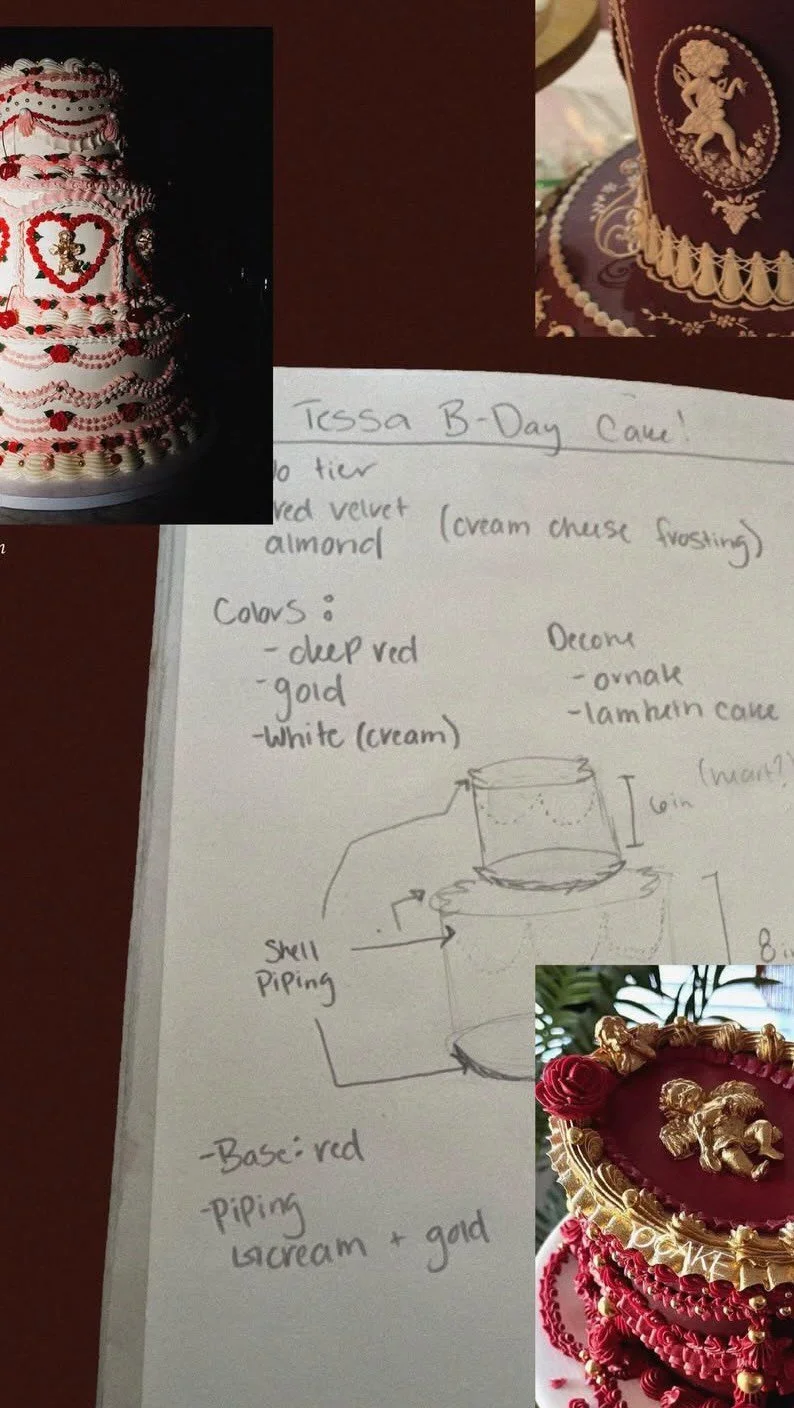 Tessa B-Day Cake!
o tier
red velvet
almond
(cream cheese frosting)
Colors:
- deep red
- gold
- White (cream)
Decore
- ornate
- lambeth cake
(heart?)
6in
8in
Shell
Piping
- Base: red
- Piping
↳ cream + gold
CAKE
n